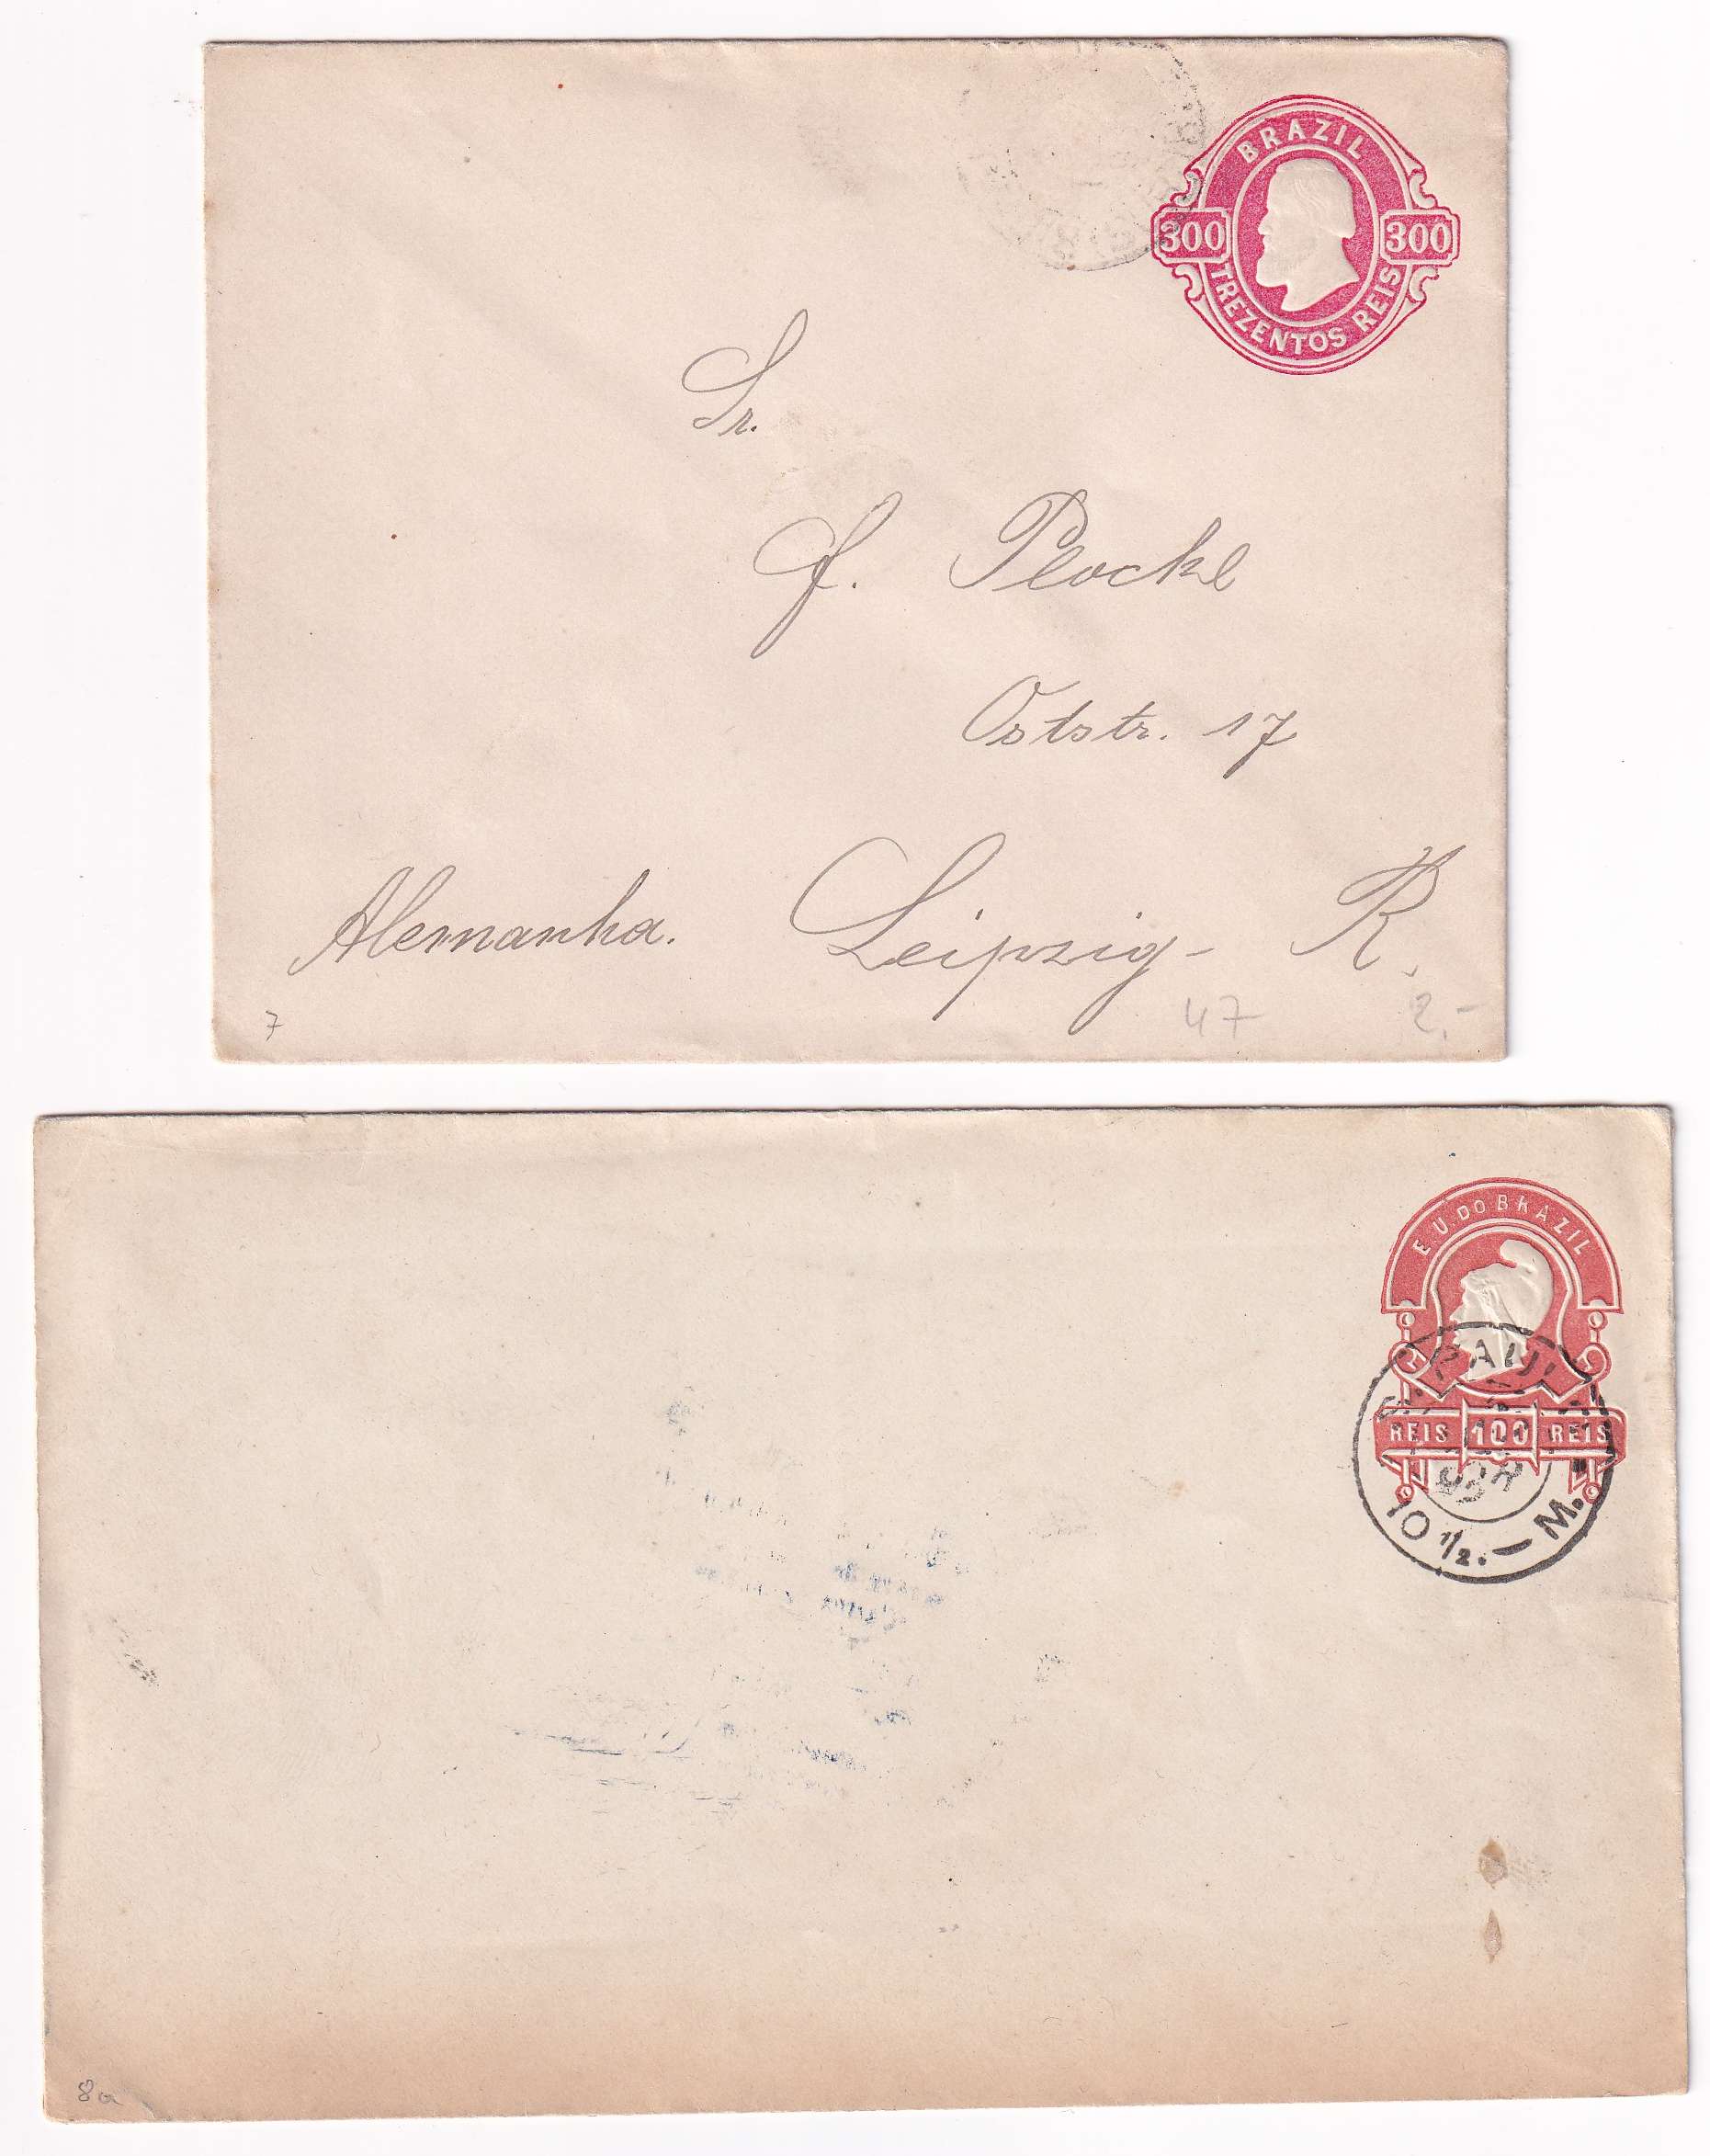 BRAZIL
300 300
TREZENTOS REIS
Sr.
F. Plockl
Oststr. 17
Alemanha. Leipzig - R.
7
47
2.-
E.U. DO BRAZIL
REIS 100 REIS
93
10 1/2. - M.
8a